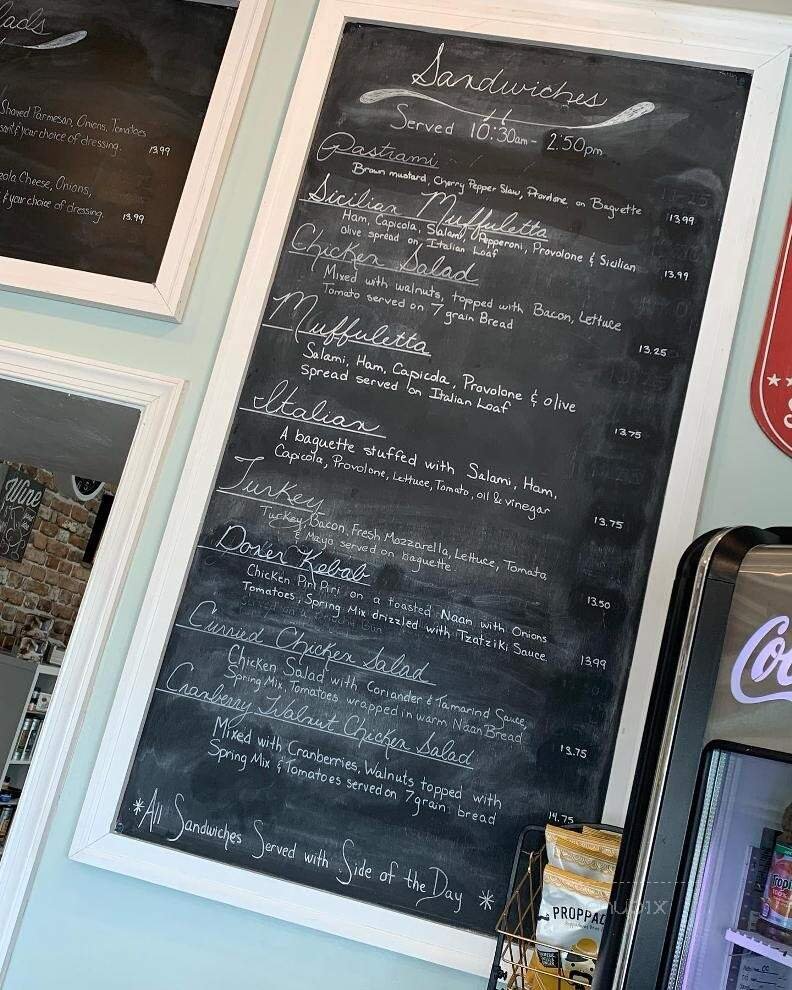 Shaved Parmesan, Onions, Tomatoes
your choice of dressing. 13.99
Cheese, Onions,
& your choice of dressing. 13.99
Wine
Sandwiches
Served 10:30am - 2:50pm
Pastrami
Brown mustard, Cherry Pepper Slaw, Provolone on Baguette 13.99
Sicilian Muffuletta
Ham, Capicola, Salami, Pepperoni, Provolone & Sicilian
olive spread on Italian Loaf 13.99
Chicken Salad
Mixed with walnuts, topped with Bacon, Lettuce
Tomato served on 7 grain Bread 13.25
Muffuletta
Salami, Ham, Capicola, Provolone & olive
Spread served on Italian Loaf 13.75
Italian
A baguette stuffed with Salami, Ham,
Capicola, Provolone, Lettuce, Tomato, oil & vinegar 13.75
Turkey
Turkey, Bacon, Fresh Mozzarella, Lettuce, Tomato,
& Mayo served on baguette. 13.50
Doner Kebab
Chicken Piri Piri on a toasted Naan with Onions
Tomatoes, Spring Mix drizzled with Tzatziki Sauce. 13.99
Curried Chicken Salad
Chicken Salad with Coriander & Tamarind Sauce,
Spring Mix, Tomatoes wrapped in warm Naan Bread 13.75
Cranberry Walnut Chicken Salad
Mixed with Cranberries, Walnuts topped with
Spring Mix & Tomatoes served on 7 grain bread 14.75
*All Sandwiches Served with Side of the Day *